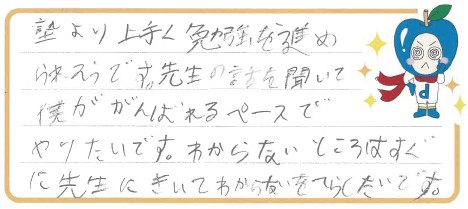 塾より上手く勉強を進め
られそうです。先生の話を聞いて
僕ががんばれるペースで
やりたいです。わからないところはすぐ
に先生にきいてわからないをへらしたいです。
d